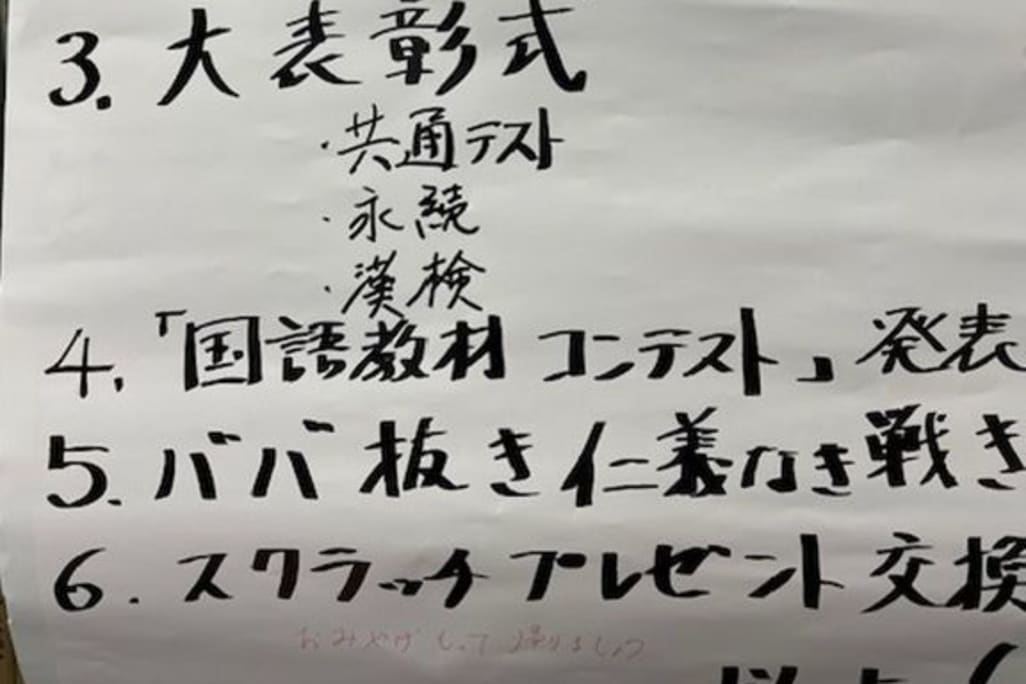 3. 大表彰式
・共通テスト
・永続
・漢検
4.「国語教材コンテスト」発表
5. ババ抜き仁義なき戦き
6. スクラッチプレゼント交換
おみやげ もって帰りましょう